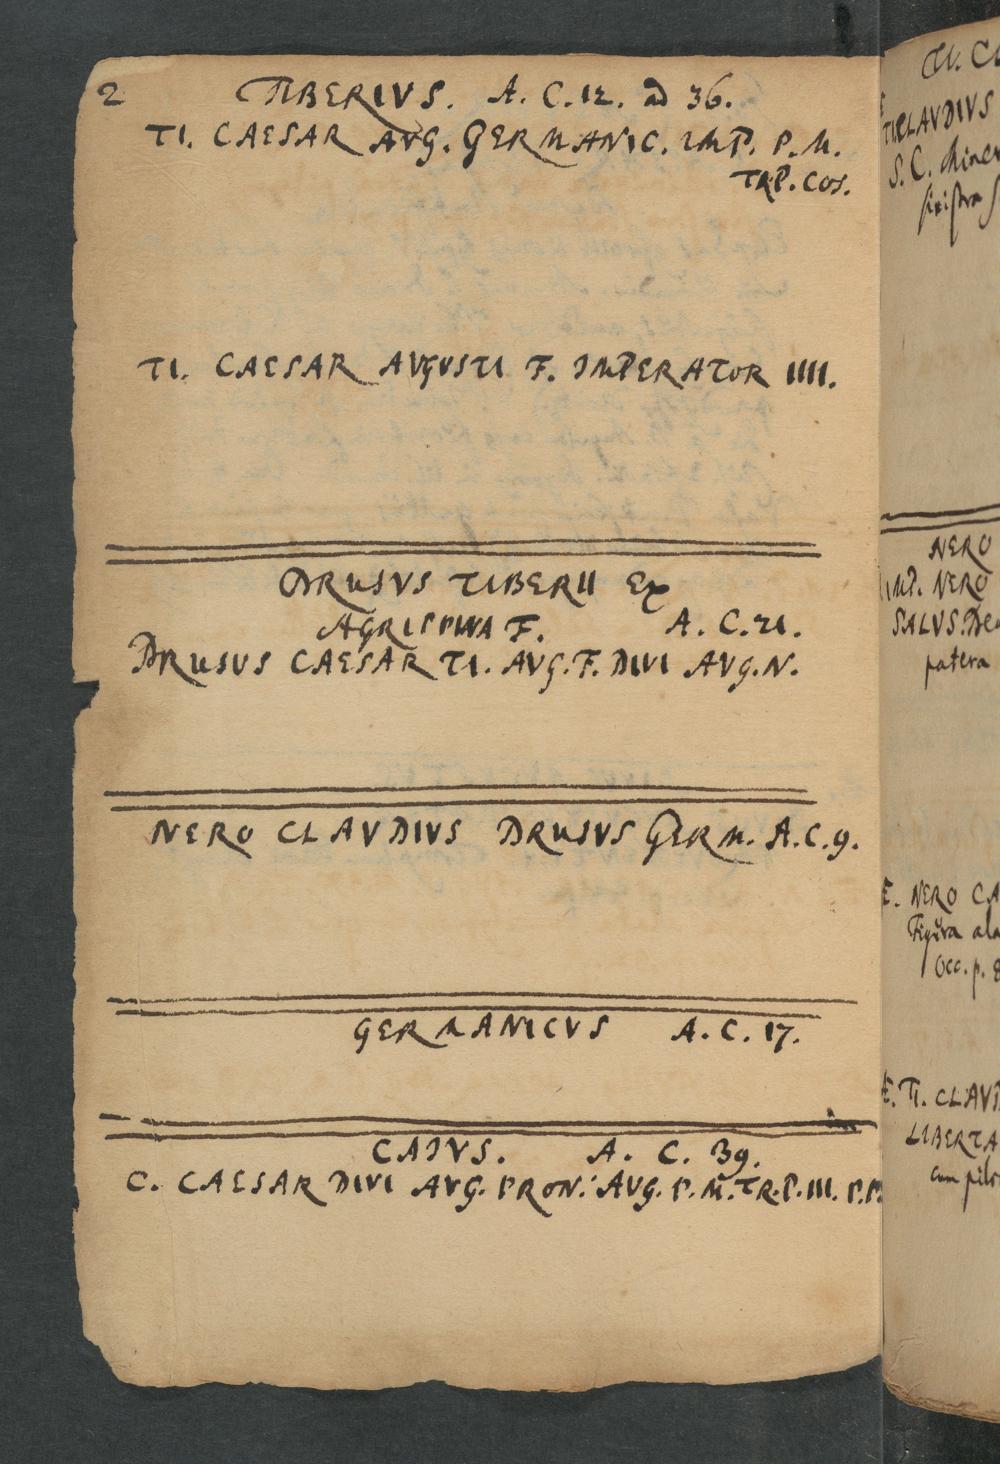 2
TIBERIVS. A. C. 12. ad 36.
TI. CAESAR AVG. GERMANIC. IMP. P. M.
TRP. COS.
TI. CAESAR AVGUSTI F. IMPERATOR IIII.
DRUSVS TIBERII Ex
AGRIPPINA F. A. C. 21.
DRUSUS CAESAR TI. AVG. F. DIVI AVG. N.
NERO CLAVDIVS DRUSVS GERM. A. C. 9.
GERMANICVS A. C. 17.
CAIVS. A. C. 39.
C. CAESAR DIVI AVG. PRON. AUG. P. M. TR. P. III. P. P.
TI. CLAVDIVS
S. C.
sinistra
NERO
IMP. NERO
SALUS.
patera
NERO CA
Figura ala
Occ. p. 8
TI. CLAVD
LIBERTA
cum